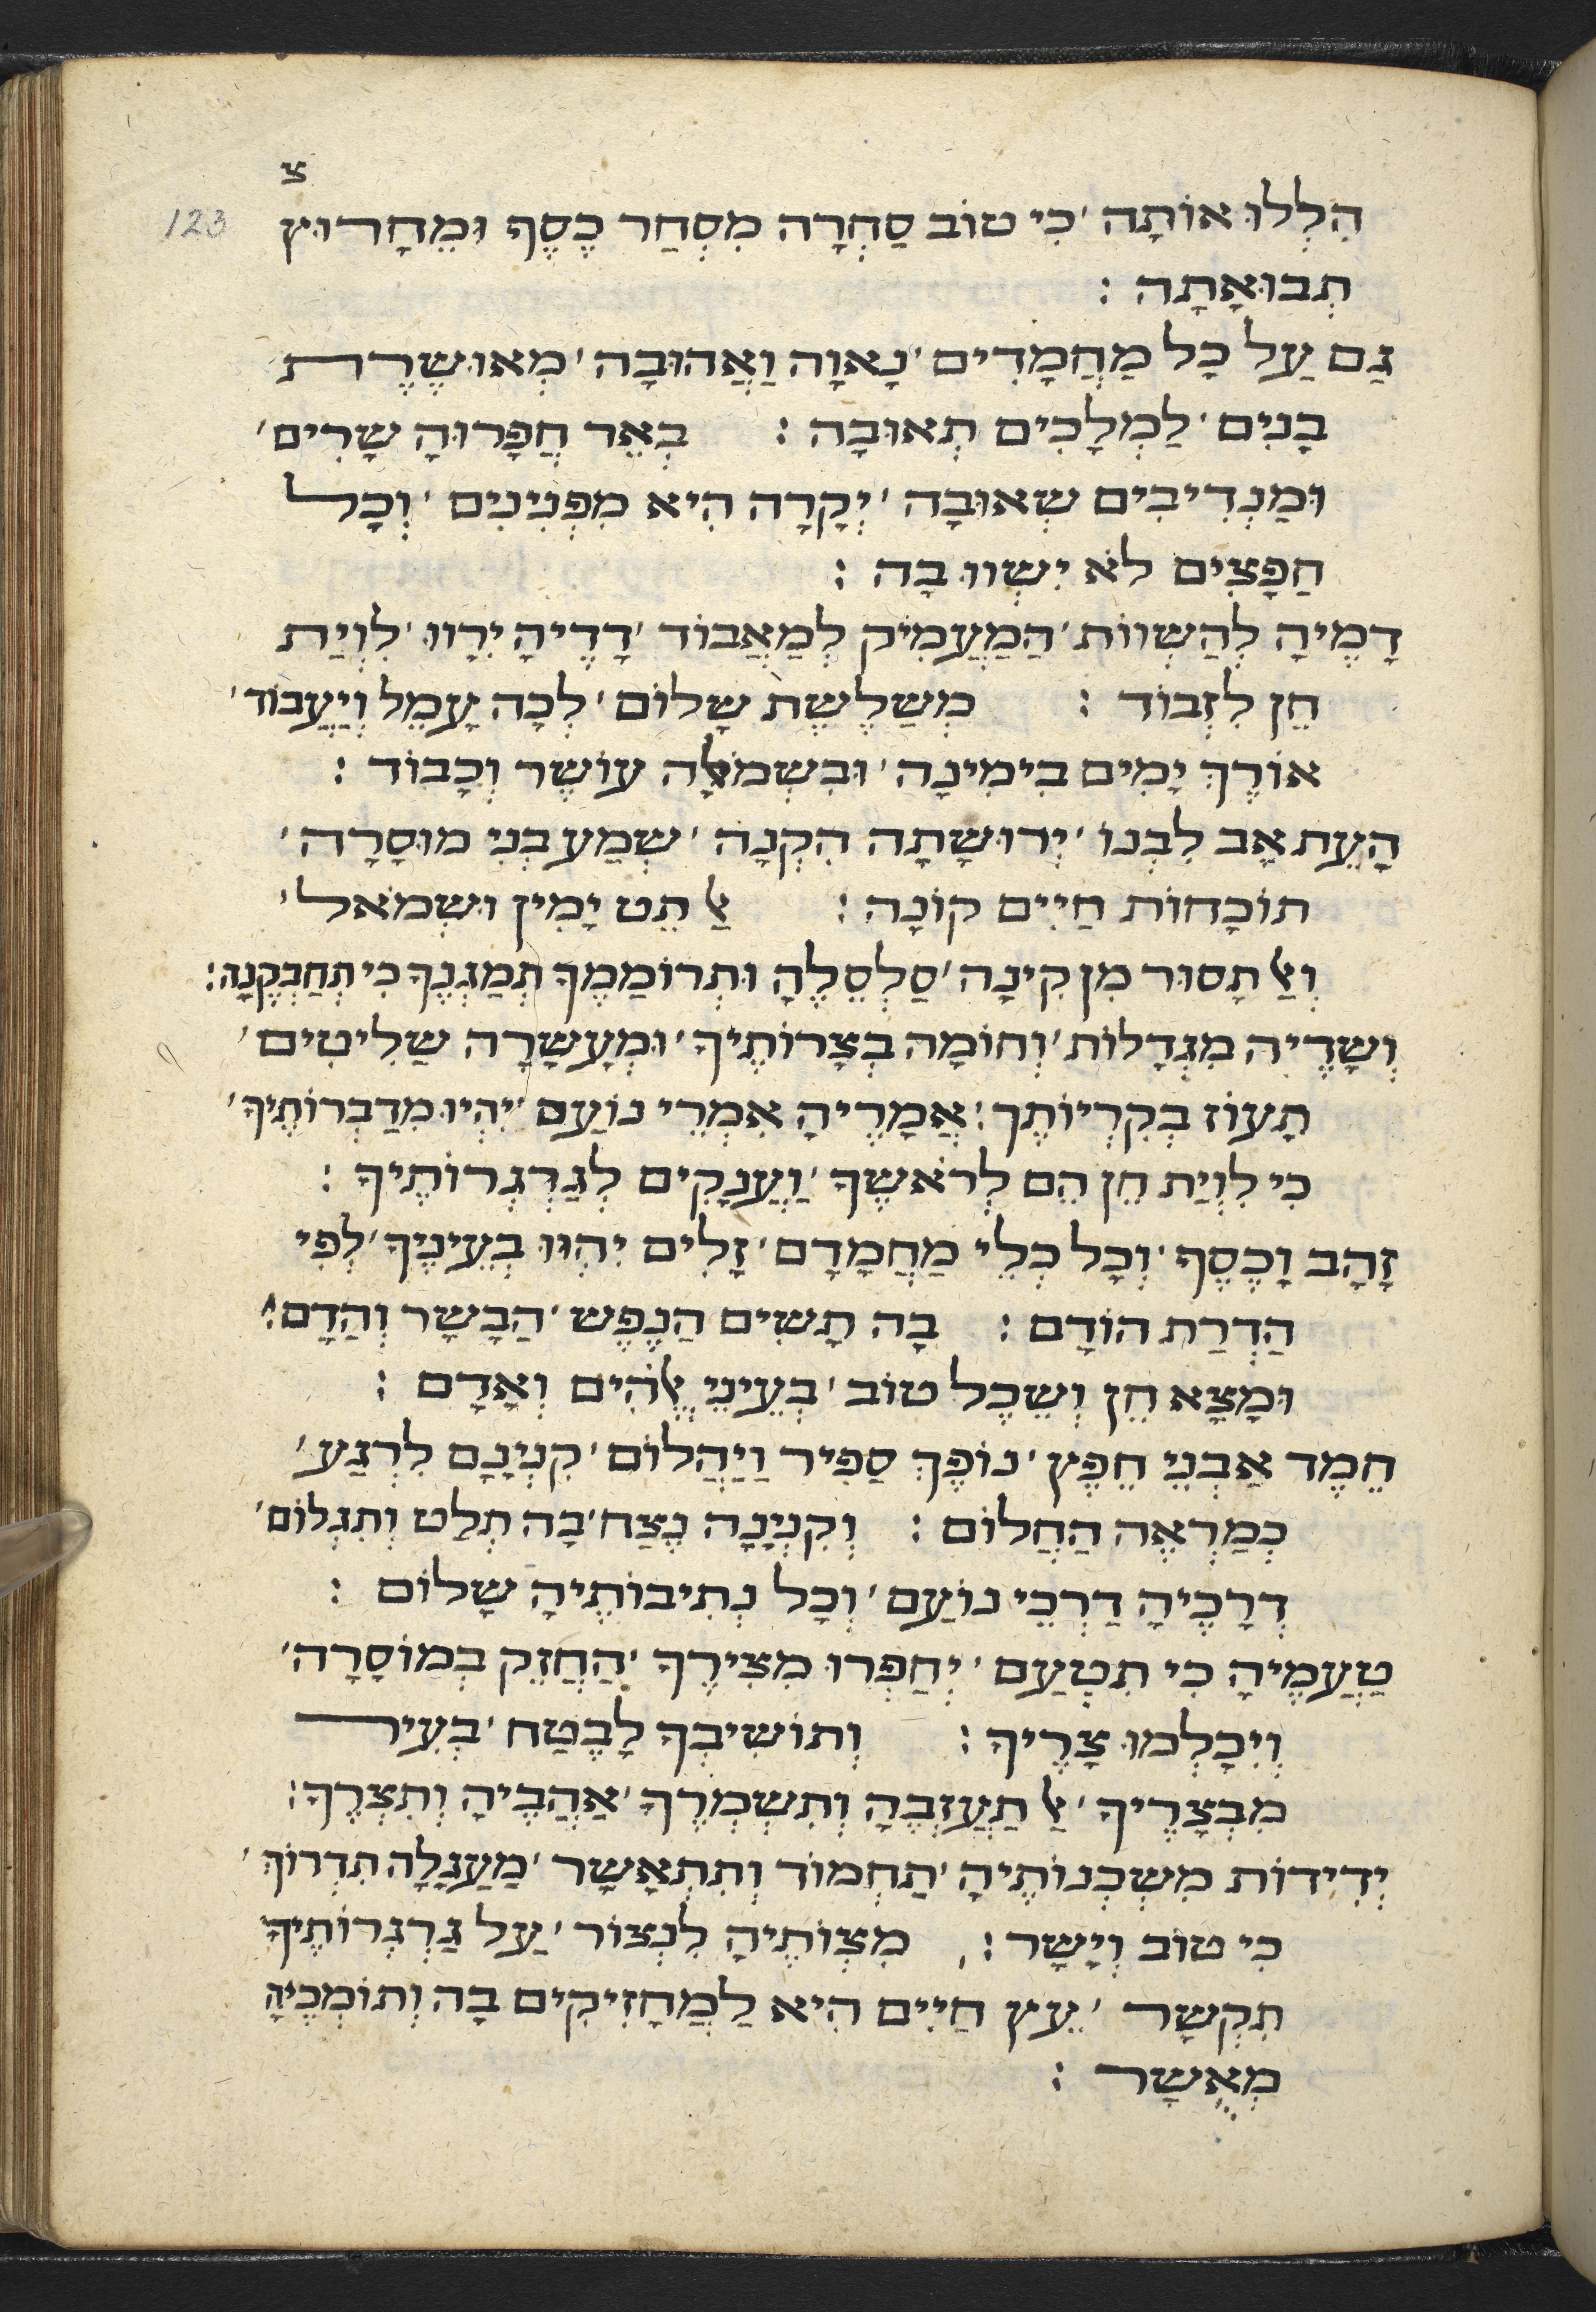 צ
123
הִלְלוּ אוֹתָה ׳ כִּי טוֹב סַחְרָה מִסְחַר כֶּסֶף וּמֵחָרוּץ
תְבוּאָתָה :
גַם עַל כָּל מַחֲמָדִים ׳ נָאוָה וַאֲהוּבָה ׳ מְאוּשֶׁרֶת
בָנִים ׳ לַמְלָכִים תְאוּבָה : בְאֵר חֲפָרוּהָ שָׂרִים ׳
וּמַנְדִיבִים שְׁאוּבָה ׳ יְקָרָה הִיא מִפְּנִינִים ׳ וְכָל
חַפָצִים לֹא יִשְׁווּ בָה :
דָמֶיהָ לְהַשְׁווֹת ׳ הַמַעֲמִיק לְמַאֲבוֹד ׳ דָדֶיהָ יְרַווּ ׳ לִוְיַת
חֵן לִזְבוֹד : מְשַׁלֶשֶׁת שָׁלוֹם ׳ לְכָה עָמֵל וְיַעֲבוֹד ׳
אוֹרֶךְ יָמִים בִימִינָה ׳ וּבִשְׂמֹאלָה עוֹשֶׁר וְכָבוֹד :
הָעֵת אָב לִבְנוֹ ׳ יְרוּשָׁתָה הִקְנָה ׳ שְׁמַע בְנִי מוּסָרָה ׳
תוֹכָחוֹת חַיִים קוֹנָה : אַל תֵט יָמִין וּשְׂמֹאל ׳
וְאַל תָסוּר מִן קִינָה ׳ סַלְסְלֶהָ וּתְרוֹמַמֶךָ תְמַגְנֶךָ כִּי תְחַבְּקֶנָה :
וְשָׁדֶיהָ מִגְדָלוֹת ׳ וְחוֹמָה בְצָרוֹתֶיךָ ׳ וּמְעָשָׂרָה שַׁלִיטִים ׳
תָעוֹז בְקִרְיוֹתֶךָ : אֲמָרֶיהָ אִמְרֵי נוֹעַם ׳ יִהְיוּ מִדַבְּרוֹתֶיךָ ׳
כִּי לִוְיַת חֵן הֵם לְרֹאשֶׁךָ ׳ וַעֲנָקִים לְגַרְגְרוֹתֶיךָ :
זָהָב וָכֶסֶף ׳ וְכָל כְּלֵי מַחֲמָדָם ׳ זָלִים יִהְיוּ בְעֵינֶיךָ ׳ לְפִי
הַדְרַת הוֹדָם : בָה תָשִׂים הַנֶפֶשׁ ׳ הַבָּשָׂר וְהַדָם :
וּמָצָא חֵן וְשֵׂכֶל טוֹב ׳ בְּעֵינֵי אֱלֹהִים וְאָדָם :
חֵמֶד אַבְנֵי חֵפֶץ ׳ נוֹפֶךְ סַפִּיר וַיַהֲלוֹם ׳ קִנְיָנָם לְרֶגַע ׳
כְּמַרְאֶה הַחֲלוֹם : וְקִנְיָנָה נֶצַח ׳ בָה תִלַט וְתִגְלוֹם ׳
דְרָכֶיהָ דַרְכֵי נוֹעַם ׳ וְכָל נְתִיבוֹתֶיהָ שָׁלוֹם :
טַעֲמֶיהָ כִּי תִטְעַם ׳ יְחַפְּרוּ מִצִירֶיךָ ׳ הַחֲזֵק בְמוֹסָרָה ׳
וְיִכָלְמוּ צָרֶיךָ : וְתוֹשִׁיבְךָ לָבֶטַח ׳ בְעִיר
מִבְצָרֶיךָ ׳ אַל תַעֲזְבֶהָ וְתִשְׁמְרֶךָ ׳ אֱהָבֶיהָ וְתִצְרֶךָ :
יְדִידוֹת מִשְׁכְּנוֹתֶיהָ ׳ תַחְמוֹד וְתִתְאַשָׁר ׳ מַעֲגָלָה תִדְרוֹךְ ׳
כִּי טוֹב וְיָשָׁר : מִצְוֹתֶיהָ לִנְצוֹר ׳ עַל גַרְגְרוֹתֶיךָ
תִקְשָׁר ׳ עֵץ חַיִים הִיא לַמַחֲזִיקִים בָה וְתוֹמְכֶיהָ
מְאֻשָׁר :